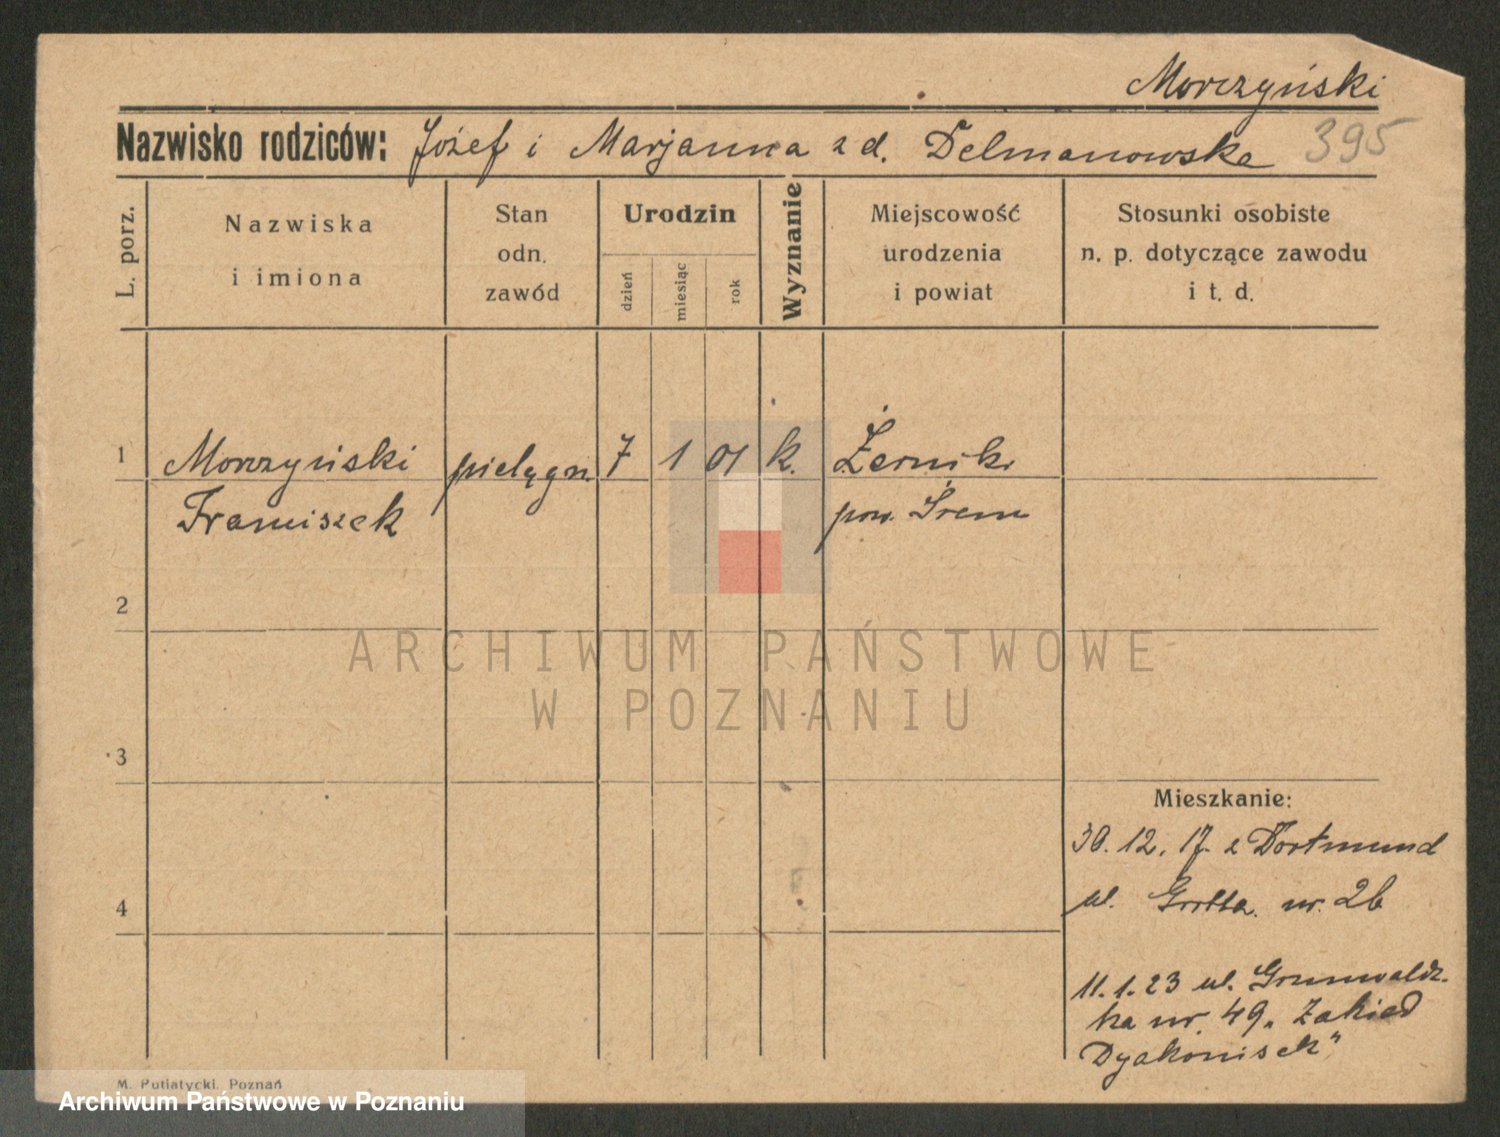 Morczyński
Nazwisko rodziców: Józef i Marjanna z d. Delmanowska 395
L. porz.
Nazwiska
i imiona
Stan
odn.
zawód
Urodzin
dzień
miesiąc
rok
Wyznanie
Miejscowość
urodzenia
i powiat
Stosunki osobiste
n. p. dotyczące zawodu
i t. d.
1 Morczyński pielęgn. 7 1 01 k. Żerniki
Franciszek pow. Śrem
2
3
4
Mieszkanie:
30. 12. 17. z Dortmund
ul. nr. 26
11. 1. 23 ul. Grunwaldz-
ka nr. 49 „Zakład
Dyakonisek"
M. Putiatycki, Poznań
ARCHIWUM PAŃSTWOWE
W POZNANIU
Archiwum Państwowe w Poznaniu